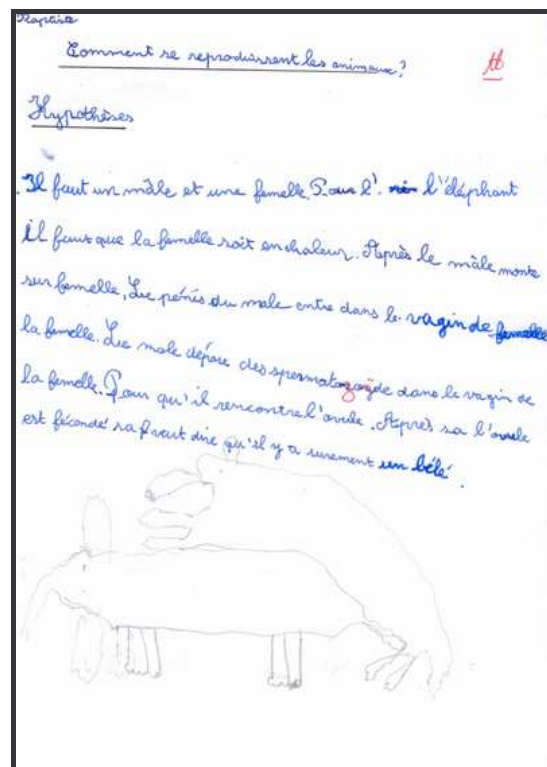 Baptiste
Comment se reproduissent les animaux?
tb
Hypothèses
Il faut un mâle et une femelle. Pour l' l'éléphant
il faut que la femelle soit en chaleur. Après le mâle monte
sur femelle. Le pénis du male entre dans le vagin de femelle
la femelle. Le male dépose des spermatozoïde dans le vagin de
la femelle. Pour qu'il rencontre l'ovule. Après sa l'ovule
est fécondé sa veut dire qu'il y a surement un bébé.